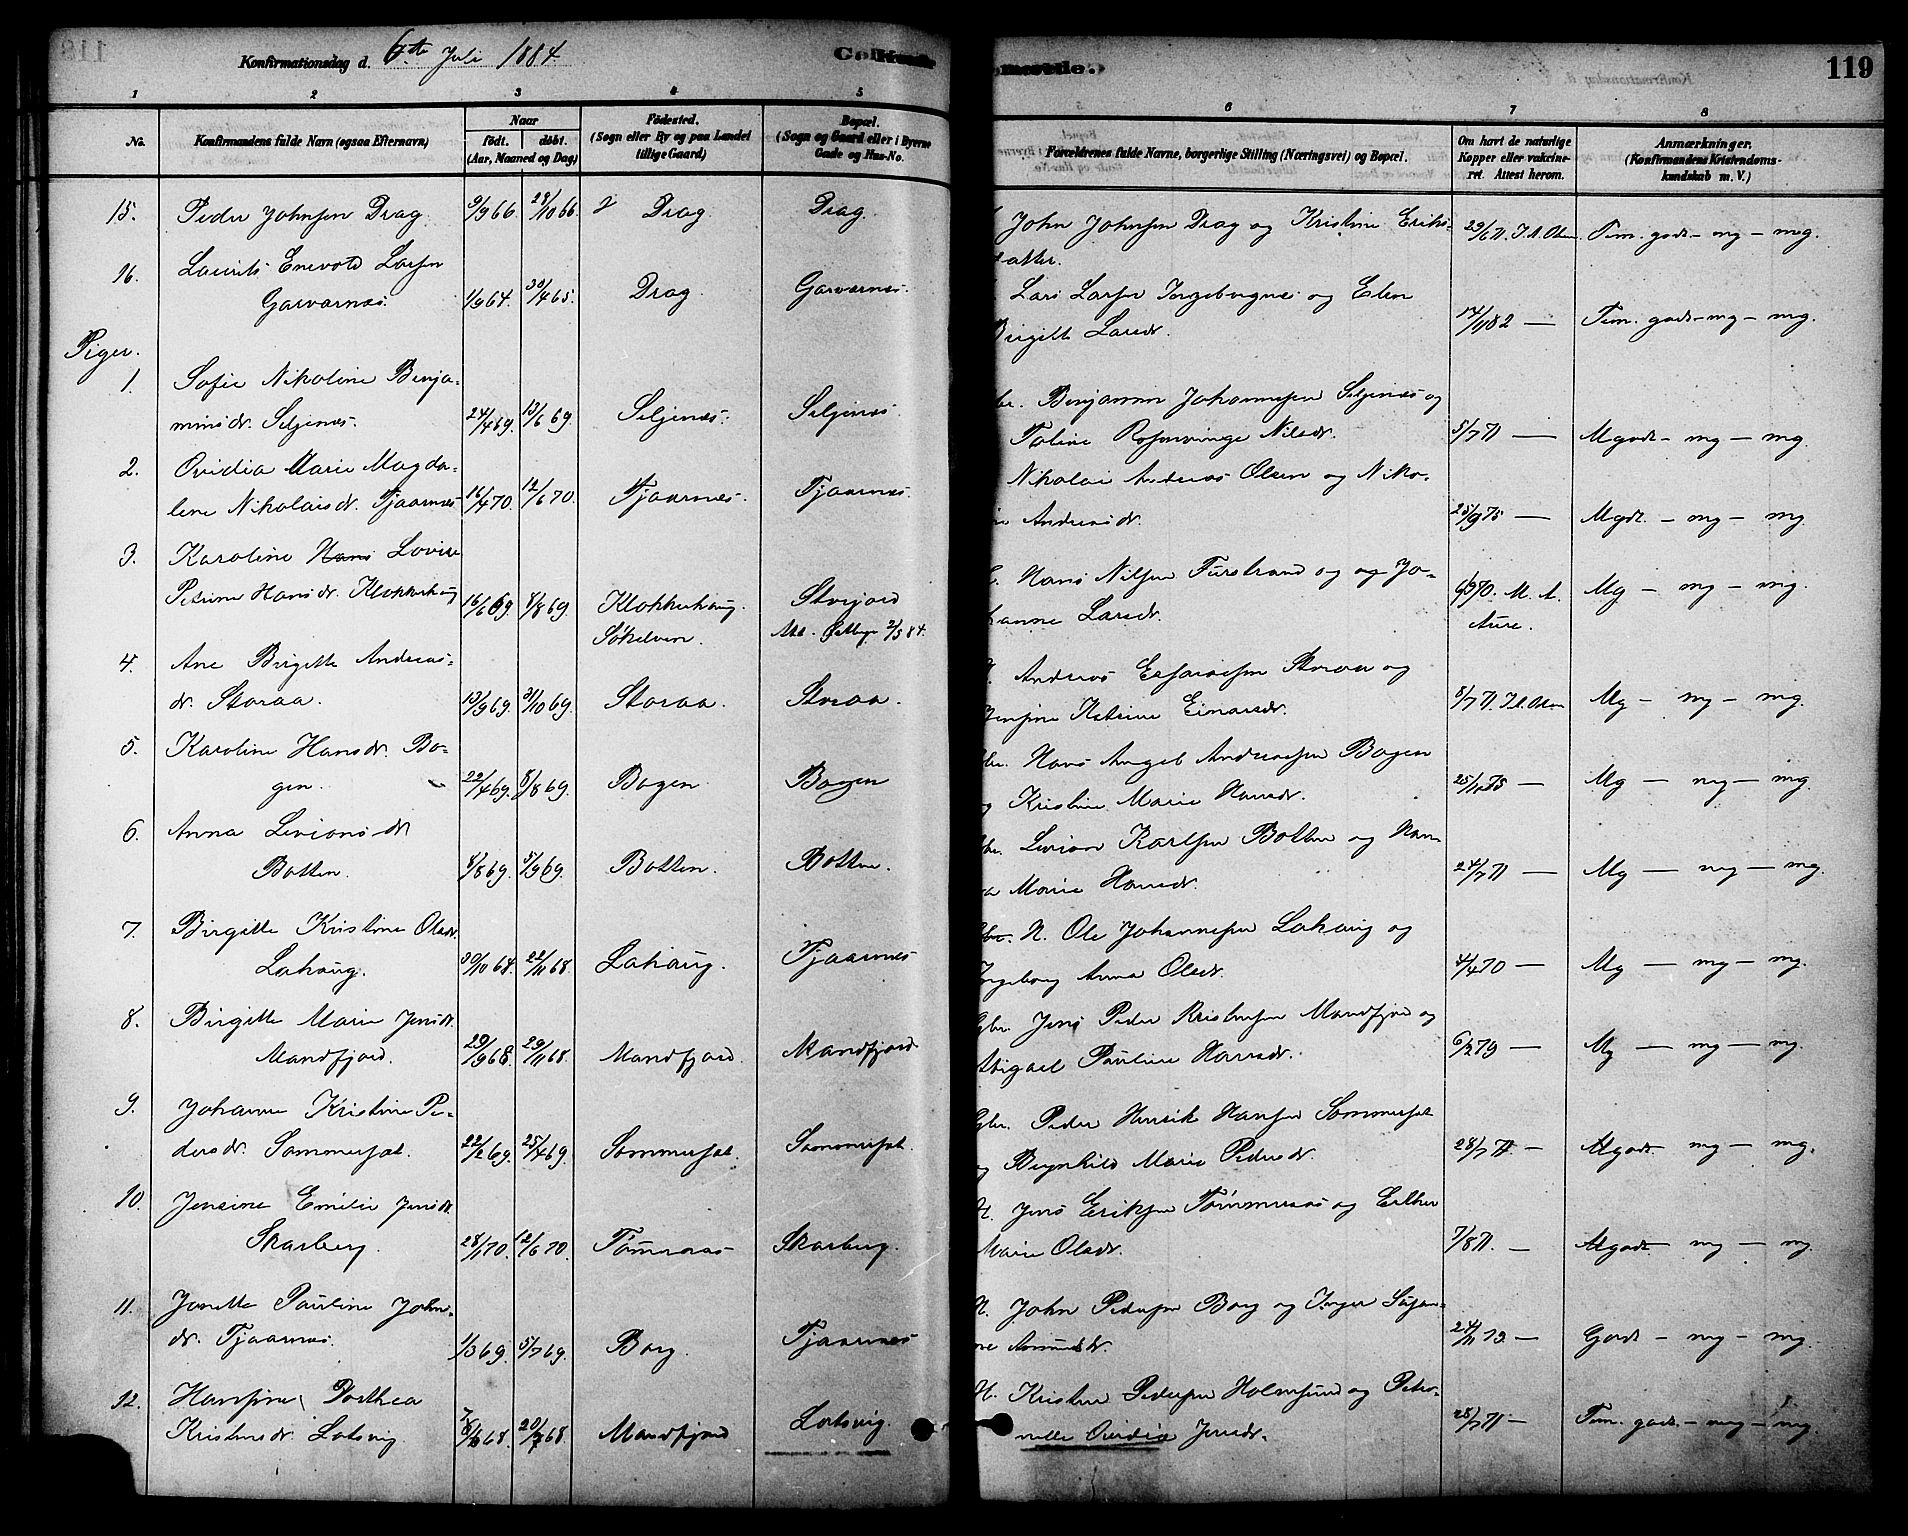 Konfirmationsdag d. 6te Juli 1884.
119
1 2 3 4 5 6 7 8
No. Konfirmandens fulde Navn (ogsaa Efternavn) Naar født. døbt. (Aar, Maaned og Dag) Fødested. (Sogn eller By og paa Landet tillige Gaard) Bopæl. (Sogn og Gaard eller i Byerne Gade og Hus-No. Forældrenes fulde Navne, borgerlige Stilling (Næringsvei) og Bopæl. Om havt de naturlige Kopper eller vakcineret. Attest herom. Anmærkninger. (Konfirmandens Kristendomskundskab m. V.)
15. Peder Johnsen Drag. 9/9 66. 28/10 66. Drag. Drag. John Johnsen Drag og Kristine Eriks-
datter. 29/6 71. Tem. godt - mg - mg.
16. Laurits Enevold Larsen
Garvarnæs. 1/9 64. 30/4 65. Drag. Garvarnæs. Lars Larsen og Elen
Birgitte Larsdr. 14/1 82 — Tem. godt - mg - mg.
Piger.
1. Sofie Nikoline Benja-
minsdr. Seljenæs. 24/4 69. 13/6 69. Seljenæs. Seljenæs. Benjamin Johannesen Seljenæs og
Nilsdr. 5/7 71 — Mgodt - mg - mg.
2. Ovidia Marie Magda-
lene Nikolaisdr. Tjaarnæs 16/4 70. 12/6 70. Tjaarnæs. Tjaarnæs. Nikolai Andreas Olsen og Niko-
Andreasdr. 25/9 75 — Mgdt. - mg - mg
3. Karoline Hans Lovise
Petrine Hansdr. Klokkerhaug 16/6 69. 8/8 69. Klokkerhaug. Storjord
Søkelven. 2/5 84. Hans Nilsen Furstrand og og Jo-
hanne Larsdr. M. A.
Aure. Mg - mg - mg.
4. Ane Birgitte Andreas-
dr. Storaa. 13/9 69. 31/10 69. Storaa. Storaa. Andreas Storaa og
Katrine Einarsdr. 5/7 71. Mg - mg - mg
5. Karoline Hansdr. Bo-
gen. 22/4 69. 8/8 69. Bogen. Bogen Hans Angel Andreasen Bogen
og Kristine Marie Hansdr. 25/10 75 Mg - mg - mg.
6. Anna Leviansdr
Botten. 8/8 69. 5/9 69. Botten. Botten. Levian Karlsen Botten og Han-
na Marie Hansdr. 24/7 71 — Mg - mg - mg.
7. Birgitte Kristine Olsdr.
Lahaug. 30/10 68. 22/11 68. Lahaug. Tjaarnæs Gbr. N. Ole Johannesen Lahaug og
Ingeborg Anna Olsdr. 4/4 70 — Mg - mg - mg.
8. Birgitte Marie Jensdr.
Mandfjord. 29/9 68. 29/11 68. Mandfjord. Mandfjord. Gbr. Jens Peder Kristensen Mandfjord og
Abigael Pauline Hansdr. 6/2 79 — Mg - mg - mg.
9. Johanne Kristine Pe-
dersdr. Sommerset. 22/2 69. 25/4 69. Sommerset. Sommerset. Gbr. Peder Henrik Hansen Sommerset
og Brynhild Marie Pedersdr. 28/7 77 — Mgodt mg - mg.
10. Jensine Emilie Jensdr.
Skarberg. 28/1 70. 12/6 70. Tømmeraas Skarberg. H. Jens Eriksen Tømmeraas og Esther
Marie Olsdr. 7/8 71. — Mgodt - mg - mg.
11. Janette Pauline Johns-
dr. Tjaarnæs. 1/3 69. 5/7 69. Borg. Tjaarnæs H. John Pedersen Borg og Inger Susan-
ne Amundsdr. 24/11 73. — Godt - mg - mg.
12. Hansine Dorthea
Kristensdr. Lotsvig 7/6 68. 20/7 68. Mandfjord Lotsvig. H. Kristen Pedersen Holmsund og Petro-
nelle Ovidia Jensdr. 28/7 71 — Tem. godt. - mg - mg.